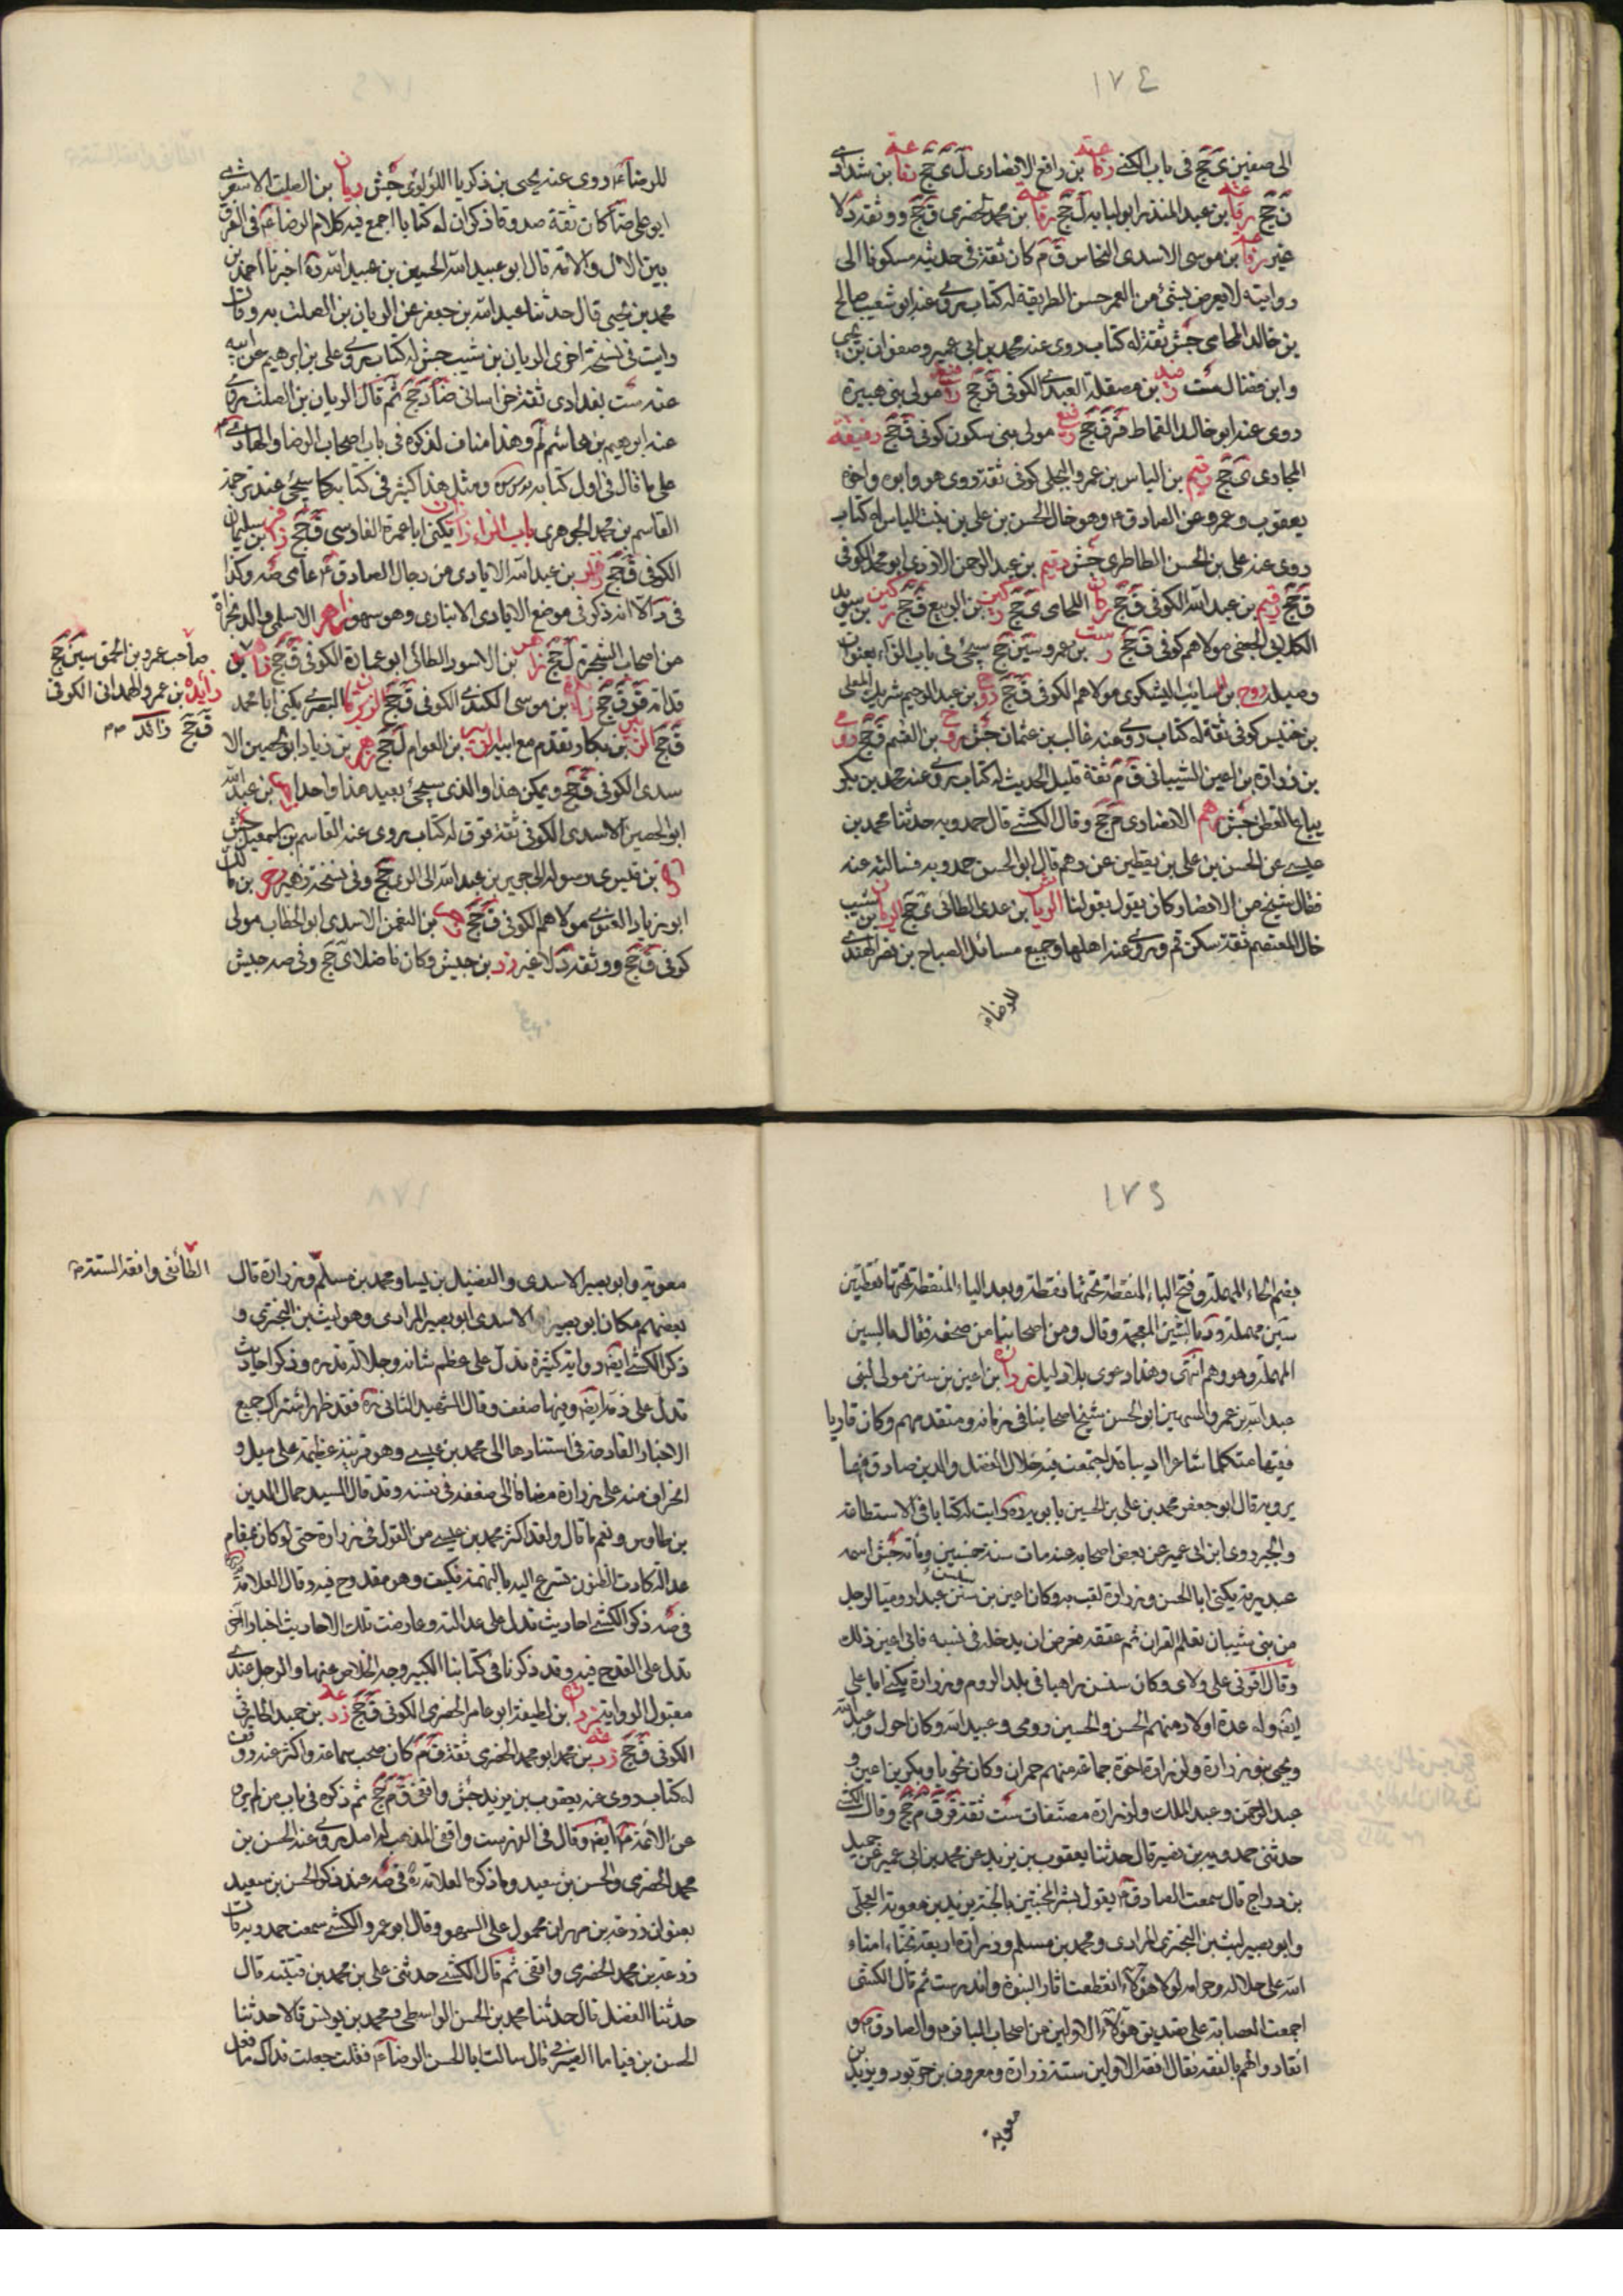 ١٧٤
الى صفين ى جح فى باب الكنى رفاعة بن رافع الانصارى ل ى جح رفاعة بن شداد
ن جح رفاعة بن عبد المنذر ابو لبابه ل جح رفاعة بن محمد الحضرمى ق جح ووثقه د لا
غير رفاعة بن موسى الاسدى النخاس ق م كان ثقة فى حديثه مسكونا الى
روايته لا يعرض بشئ من الغمز حسن الطريقة له كتاب يروى عنه ابو شعيب صالح
بن خالد المحاملى جش ثقة له كتاب روى عنه محمد بن ابى عمير وصفوان بن يحيى
وابن فضال ست بن مصقلة العبدى الكوفى ق جح مولى بنى هبيرة
روى عنه ابو خالد القماط ق جح مولى بنى سكون كوفى ق جح
ى جح رقيم بن الياس بن عمرو البجلى كوفى ثقة روى هو وابوه واخوه
يعقوب وعمرو عن الصادق ع وهو خال الحسن بن على بن بنت الياس له كتاب
روى عنه على بن الحسن الطاطرى جش رقيم بن عبد الرحمن الازدى ابو محمد الكوفى
ق جح رقيم بن عبد الله الكوفى ق جح ى جح ركين بن الربيع ق جح ركين بن سويد
الكلابى الجعفى مولاهم كوفى ق جح بن عمرو سين جح سيجئ فى باب الزاء بعنوان
روح بن السائب اليشكرى مولاهم الكوفى ق جح روح بن عبد الرحيم شريك المعلى
بن خنيس كوفى ثقة له كتاب روى عنه غالب بن عثمان جش روح بن القسم ق جح رومى
بن زرارة بن اعين الشيبانى ق م ثقة قليل الحديث له كتاب يروى عنه محمد بن بكر
بياع القطن جش رهم الانصارى م جح وقال الكشى قال حمدويه حدثنا محمد بن
عيسى عن الحسن بن على بن يقطين عن رهم قال ابو الحسن حمدويه فسالته عنه
فقال شيخ من الانصار كان يقول بقولنا الرياش بن عدى الطائى ى جح الريان بن شبيب
خال المعتصم ثقة سكن قم وروى عنه اهلها وجمع مسائل الصباح بن نضر الهندى
للرضاء
للرضاء ع روى عنه يحيى بن زكريا اللؤلؤى جش ريان بن الصلت الاشعرى
ابو على ضا كان ثقة صدوقا ذكر ان له كتابا جمع فيه كلام الرضا ع فى الفرق
بين الال والامة قال ابو عبيد الله الحسين بن عبيد الله ره اخبرنا احمد بن
محمد بن يحيى قال حدثنا عبد الله بن جعفر عن الريان بن الصلت به وقال
رايت فى نسخة اخرى الريان بن شبيب جش له كتاب يروى على بن ابرهيم عن ابيه
عنه ست بغدادى ثقة خراسانى ضا د جح ثم قال الريان بن الصلت يروى
عنه ابرهيم بن هاشم لم وهذا مناف لذكره فى باب اصحاب الرضا والهادى ع
على ما قال فى اول كتابه ومثل هذا كثير فى كتابه كما سيجئ عند ترجمة
القاسم بن محمد الجوهرى باب الزاء زاذان يكنى ابا عمرة الفارسى ق جح زافر بن سليمان
الكوفى ق جح بن عبد الله الايادى من رجال الصادق ع عامى صه وكذا
فى د الا انه ذكر فى موضع الايادى الانبارى وهو سهو زاهر الاسلمى والد مجزاة
من اصحاب الشجرة ل جح زاهر بن الاسود الطائى ابو عمارة الكوفى ق جح بن
قدامة ق ق جح زائدة بن موسى الكندى الكوفى ق جح الزبير البصرى يكنى ابا محمد
ق جح الزبير بن بكار تقدم مع ابيه الزبير بن العوام ل جح زحر بن زياد ابو الحصين الا
سدى الكوفى ق جح ويمكن هذا والذى سيجئ بعيد هذا واحدا بن عبد الله
ابو الحصين الاسدى الكوفى ثقة ق ق له كتاب يروى عنه القاسم بن اسمعيل جش
بن قيس ى رسوله الى جرير بن عبد الله الى الرى جح وفى نسخة زهير زحر بن مالك
ابو زياد الغنوى مولاهم الكوفى ق جح بن النعمن الاسدى ابو الخطاب مولى
كوفى ق جح ووثقه د لا غير زر بن حبيش وكان فاضلا ى جح وفى صه حبيش
صاحب عمرو بن الحمق سين جح
زايدة بن عمرو الهمدانى الكوفى
ق جح زائد
١٧٥
بضم الحاء المهملة وفتح الباء المنقطة تحتها نقطة وبعد الياء المنقطة تحتها نقطتين
سين مهملة ود بالشين المعجمة وقال ومن اصحابنا من صحفه فقال بالسين
المهملة وهو وهم انتهى وهذا دعوى بلا دليل زرارة بن اعين بن سنسن مولى لبنى
عبد الله بن عمرو السمين ابو الحسن شيخ اصحابنا فى زمانه ومتقدمهم وكان قاريا
فقيها متكلما شاعرا اديبا قد اجتمعت فيه خلال الفضل والدين صادق فيما
يرويه قال ابو جعفر محمد بن على بن الحسين بابويه ره رايت له كتابا فى الاستطاعة
والجبر روى ابن ابى عمير عن بعض اصحابه عنه مات سنة خمسين ومائة جش اسمه
عبد ربه يكنى ابا الحسن وزرارة لقب به وكان اعين بن سنسن عبدا روميا لرجل
من بنى شيبان تعلم القران ثم عتقه فعرض ان يدخله فى نسبه فابى اعين ذلك
وقال اقرنى على ولاى وكان سنسن راهبا فى بلد الروم وزرارة يكنى ابا على
ايضا وله عدة اولاد منهم الحسن والحسين ورومى وعبيد الله وكان احول وعبد الله
ويحيى بنو زرارة ولزرارة اخوة جماعة منهم حمران وكان نحويا وبكير بن اعين و
عبد الرحمن وعبد الملك ولزرارة مصنفات ست ثقة ق ق م جح وقال الكشى
حدثنى حمدويه بن نصير قال حدثنا يعقوب بن يزيد عن محمد بن ابى عمير عن جميل
بن دراج قال سمعت الصادق ع يقول بشر المخبتين بالجنة بريد بن معوية العجلى
وابو بصير ليث بن البخترى المرادى ومحمد بن مسلم وزرارة اربعة نجباء امناء
الله على حلاله وحرامه لولا هؤلاء انقطعت اثار النبوة واندرست ثم قال الكشى
اجمعت العصابة على تصديق هؤلاء الاولين من اصحاب الباقر ع والصادق ع و
انقادوا لهم بالفقه فقال افقه الاولين ستة زرارة ومعروف بن خربوذ وبريد بن
معوية
معوية وابو بصير الاسدى والفضيل بن يسار ومحمد بن مسلم وزرارة قال
بعضهم مكان ابو بصير الاسدى ابو بصير المرادى وهو ليث بن البخترى و
ذكر الكشى ايضا رواية كثيرة تدل على عظم شانه وجلالة قدره وذكر احاديث
تدل على ذمه ايضا وفيها ضعف وقال الشهيد الثانى ره فقد ظهر اشتراك جميع
الاخبار القادحة فى استنادها الى محمد بن عيسى وهو قرينة عظيمة على ميل و
انحراف منه على زرارة مضافا الى ضعفه فى نفسه وقد قال السيد جمال الدين
بن طاوس ونعم ما قال ولقد اكثر محمد بن عيسى من القول فى زرارة حتى لو كان بمقام
عدالة كادت الظنون تسرع اليه بالتهمة فكيف وهو مقدوح فيه وقال العلامة
فى صه ذكر الكشى احاديث تدل على عدالته وعارضت تلك الاحاديث اخبار اخر
تدل على القدح فيه وقد ذكرنا فى كتابنا الكبير وجه الخلاص عنها والرجل عندى
مقبول الرواية بن لطيفة ابو عامر الحضرمى الكوفى ق جح زرعة بن حميد الحارثى
الكوفى ق جح زرعة بن محمد ابو محمد الحضرمى ثقة ق م كان صحب سماعة واكثر عنه ووقف
له كتاب روى عنه يعقوب بن يزيد جش واقفى ق م جح ثم ذكره فى باب من لم يرو
عن الائمة ع ايضا وقال فى الفهرست واقفى المذهب له اصل يروى عنه الحسن بن
محمد الحضرمى والحسن بن سعيد وما ذكره العلامة ره فى صه عند ذكر الحسن بن سعيد
بعنوان زرعة بن مهران محمول على السهو وقال ابو عمرو الكشى سمعت حمدويه قال
زرعة بن محمد الحضرمى واقفى ثم قال الكشى حدثنى على بن محمد بن قتيبة قال
حدثنا الفضل قال حدثنا محمد بن الحسن الواسطى ومحمد بن يونس قالا حدثنا
الحسن بن قياما الصيرفى قال سالت ابا الحسن الرضا ع فقلت جعلت فداك ما فعل
الطائفى وافقه الستة